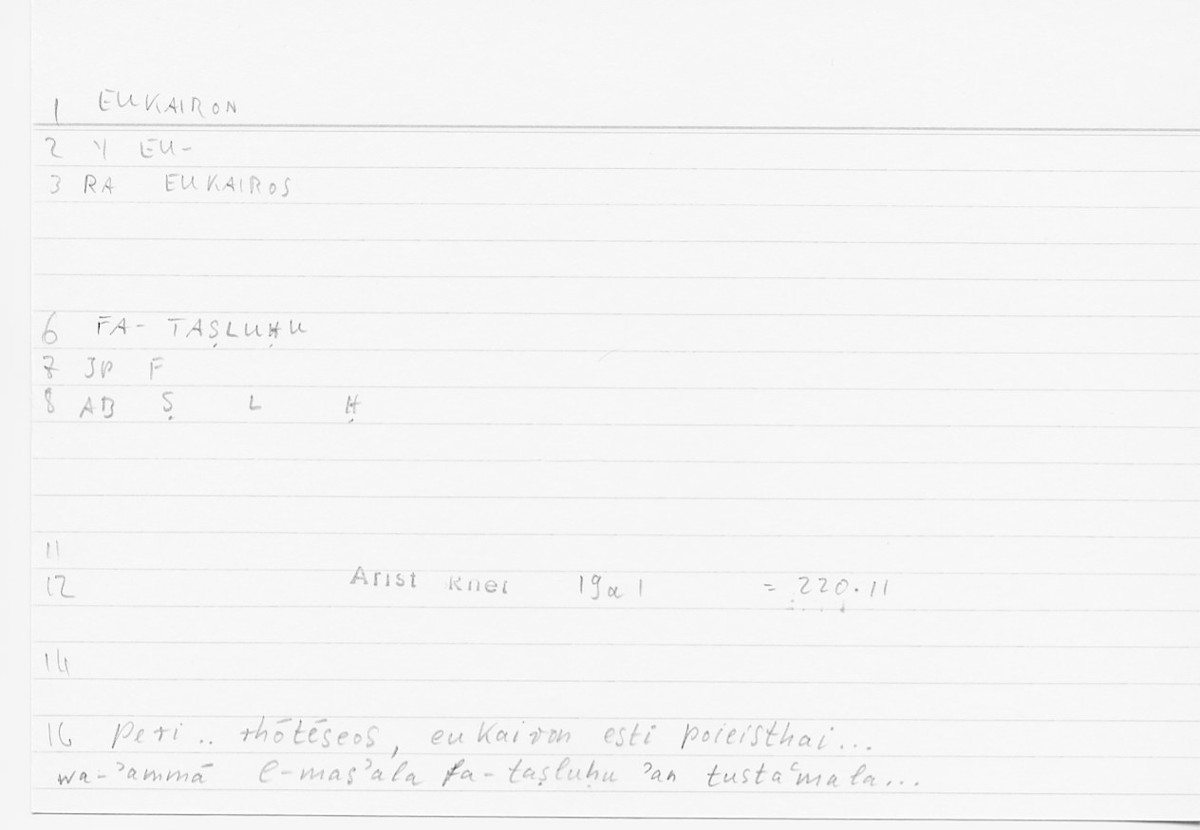 1 EUKAIRON
2 Y EU-
3 RA EUKAIROS
6 FA- TAṢLUḤU
7 3P F
8 AB Ṣ L Ḥ
11
12 Arist Rhet 19a1 = 220.11
14
16 peri .. rhōtēseos, eukairon esti poieisthai...
wa-ʾammā l-masʾala fa-taṣluḥu ʾan tustaʿmala...